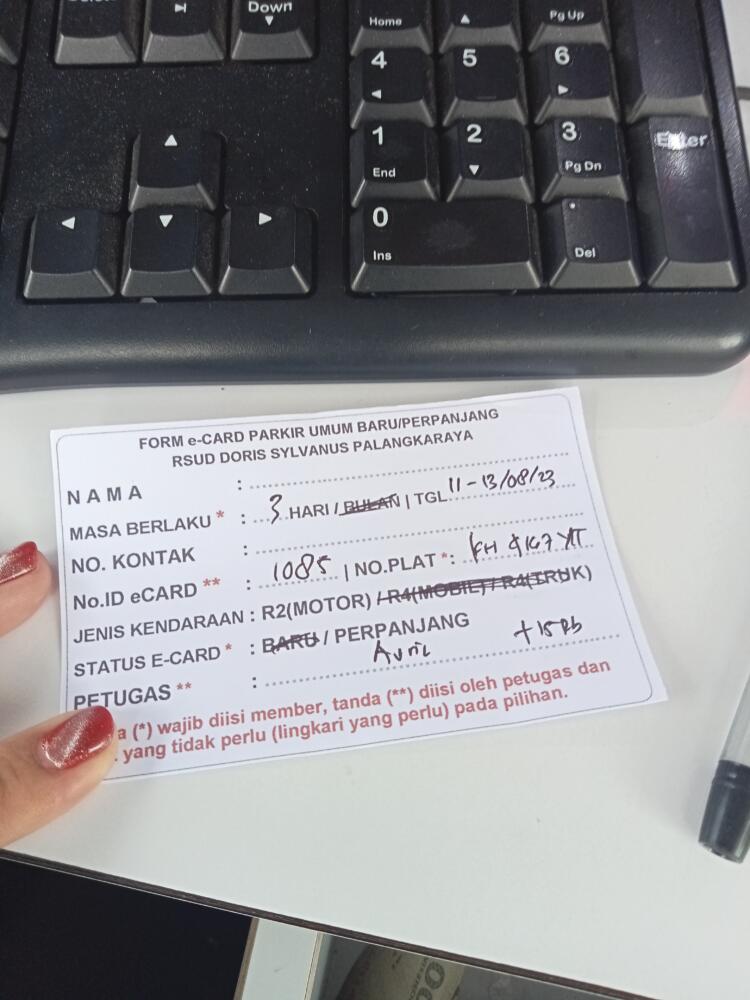 Down
Home
Pg Up
4
5
6
1
2
3
End
Pg Dn
Enter
0
Ins
Del
FORM e-CARD PARKIR UMUM BARU/PERPANJANG
RSUD DORIS SYLVANUS PALANGKARAYA
NAMA :
MASA BERLAKU * : 3 HARI / BULAN | TGL 11-13/08/23
NO. KONTAK :
No.ID eCARD ** : 1085 | NO.PLAT *: KH
JENIS KENDARAAN : R2(MOTOR) / R4(MOBIL) / R4(TRUK)
STATUS E-CARD * : BARU / PERPANJANG
PETUGAS ** : Avric +15 Rb
a (*) wajib diisi member, tanda (**) diisi oleh petugas dan
yang tidak perlu (lingkari yang perlu) pada pilihan.